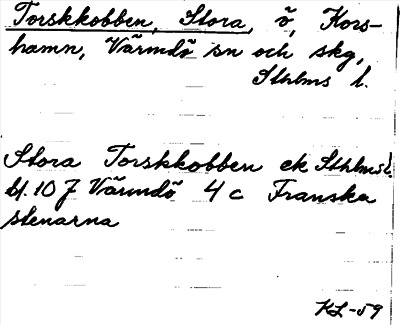 Torskkobben, Stora, ö, Kors-
hamn, Värmdö sn och skg,
Sthlms l.
Stora Torskkobben ek Sthlms l.
bl. 10 J Värmdö 4 c Franska
stenarna
KL-59